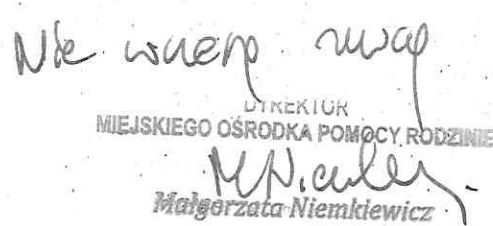 Nie wnoszę uwag
DYREKTOR
MIEJSKIEGO OŚRODKA POMOCY RODZINIE
Małgorzata Niemkiewicz